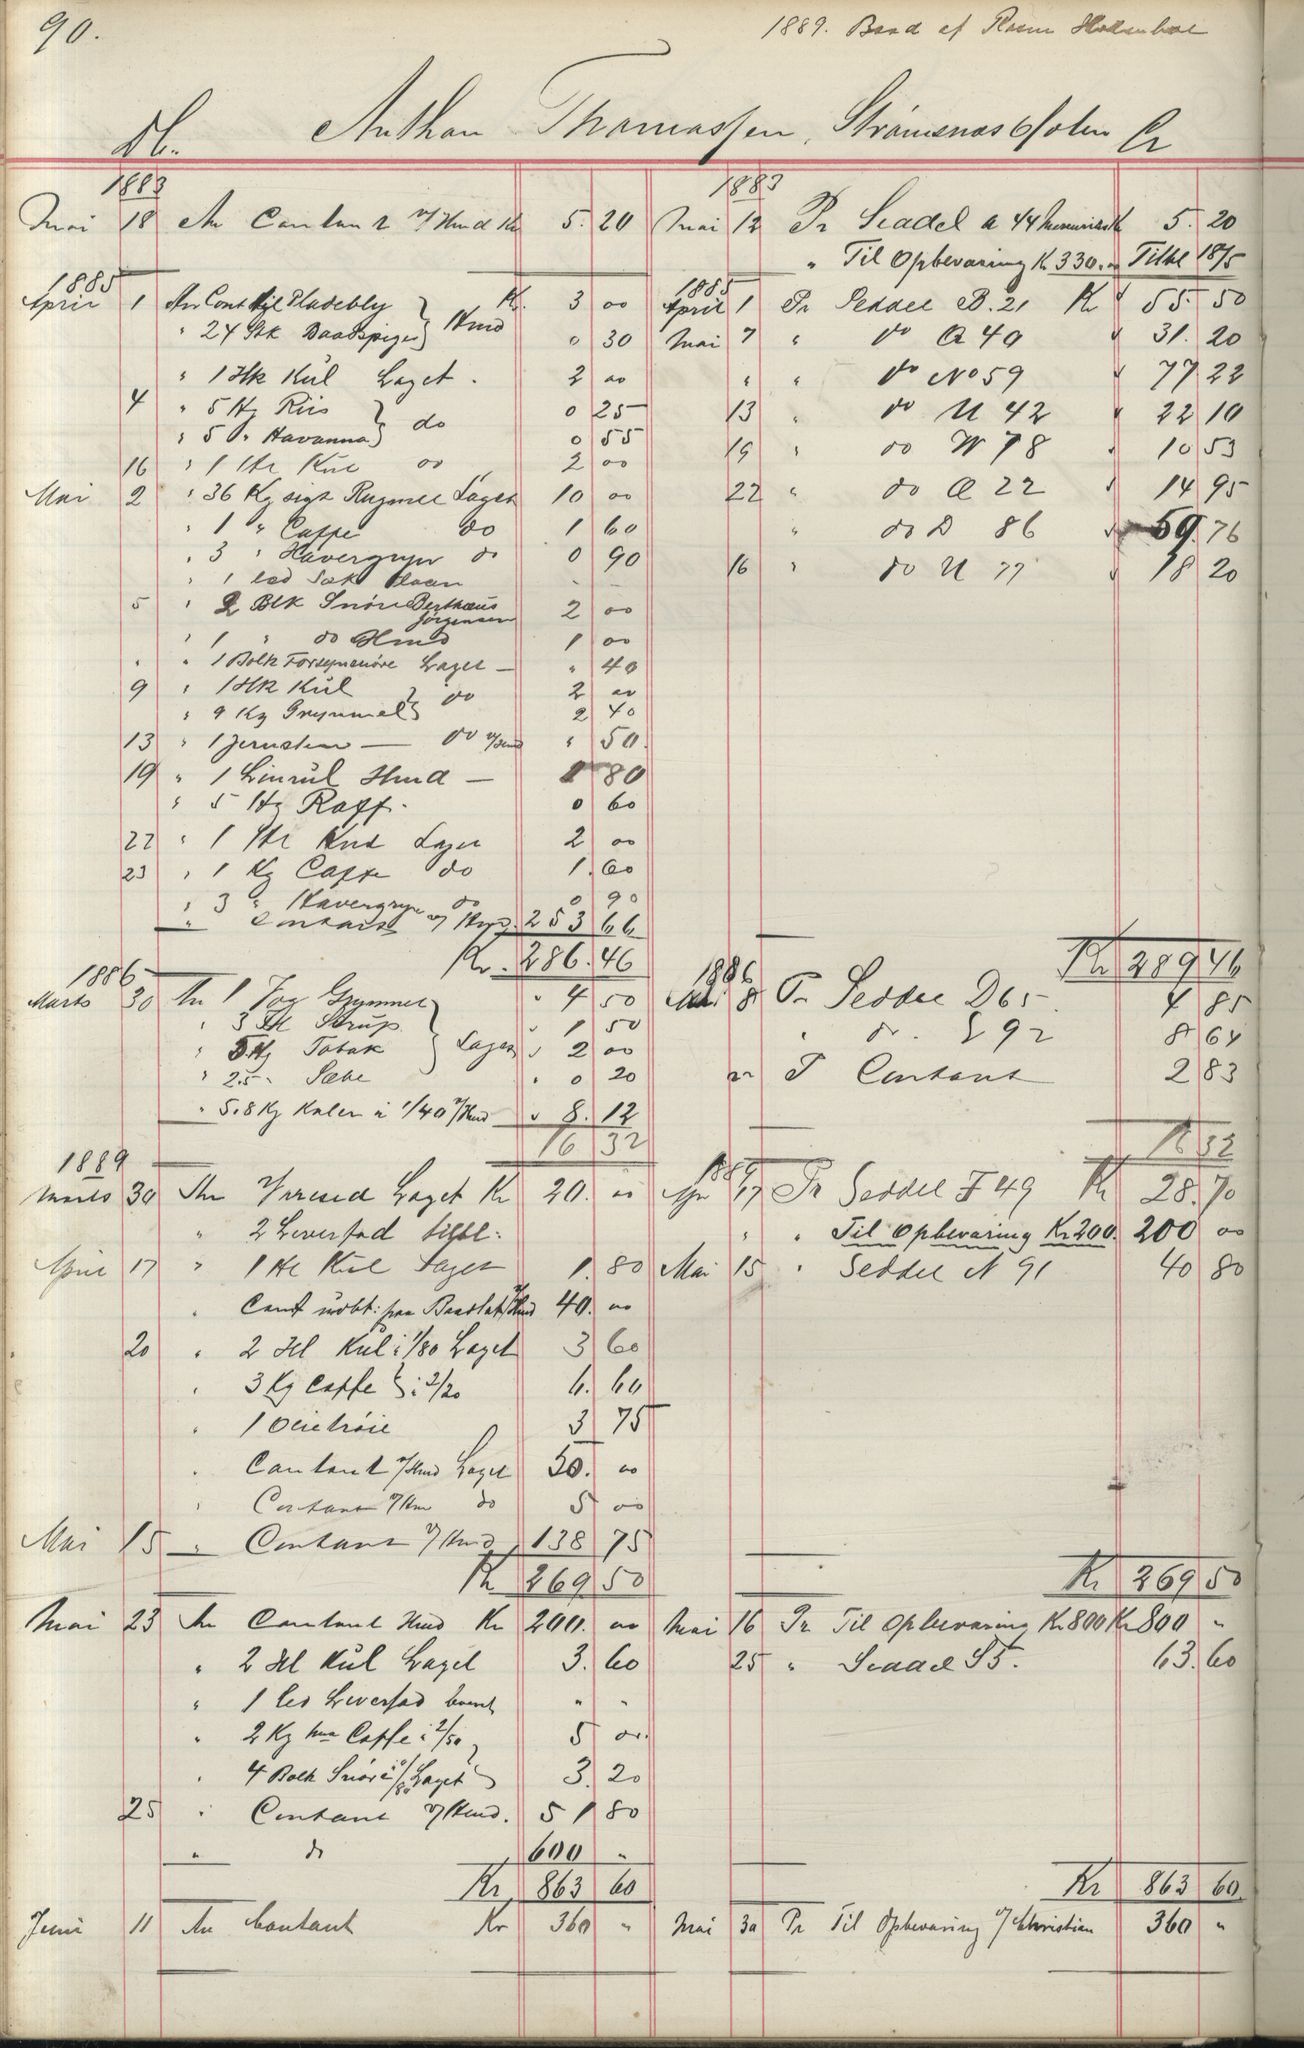 90.
1889. Baad af
Anthon Thomassen, Strømsnes Ofoten
Db. Cr
1883 1883
Mai 18 An Contant v/ Hmd Kr 5. 20 Mai 12 Pr Seddel a 44 5. 20
" Til Opbevaring Kr 330. Tilbe 18/5
1885 1885
April 1 An Cont til Kr. 3 00 April 1 Pr Seddel B. 21 Kr 55. 50
" 24 Stk Baadspiger Hmd 0 30 Mai 7 " do A 40 31. 20
" 1 Hk Kul Laget. 2 00 " " do No 59 77 22
4 " 5 Hg Riis do 0 25 13 " do U 42 22 10
" 5 " Havanna 0 55 19 " do W 78 10 53
16 " 1 Hk Kul do 2 00
Mai 2 " 36 Kg sigt Rugmel Laget 10 00 22 " do Q 22 14 95
" 1 " Caffe do 1 60 " do D 86 59. 76
" 3 " Havergryn do 0 90 16 " do U 77 18 20
" 1 Sæk
5 " 2 Blk Snøre Berthæus Jørgensen 2 00
" 1 " do Hmd 1 00
" " 1 Bolk Forsynsnøre Laget — " 40
9 " 1 Hk Kul do 2 00
" 9 Kg Grynmel 2 40
13 " 1 — do v/Hmd " 50.
19 " 1 Hmd — 1 80
" 5 Hg Raff. 0 60
22 " 1 Hk Kul Laget 2 00
23 " 1 Kg Caffe do 1. 60
" 3 " Havergryn do 0 90
" Contant v/ Hmd. 253 66
Kr. 286. 46 Kr 289 46
1886 1886
Marts 30 An 1 Vog Grynmel " 4 50 Mai 8 Pr Seddel D 65 4 85
" 3 Sirup " 1 50 " do. 92 8 64
" 5 Hg Tobak Laget " 2 00
" 2.5 " Sæbe " 0 20 " Contant 2 83
" 5.8 Kg Kulen a 1/40 v/Hmd " 8. 12
16 32 16 32
1889 1889
Marts 30 An Laget Kr 20. 00 Apr 17 Pr Seddel F 49 Kr 28. 70
" 2 Leverfad tilbl. " " Til Opbevaring Kr 200. 200 00
April 17 " 1 Hl Kul Laget 1. 80 Mai 15 " Seddel N 91 40 80
" Cont udbt: paa v/Hmd 40. 00
20 " 2 Hl Kul a 1/80 Laget 3 60
" 3 Kg Caffe a 2/20 6. 60
" 1 3 75
" Contant v/Hmd Laget 50. 00
" Contant v/Hm do 5 00
Mai 15 " Contant v/Hmd 138 75
Kr 269 50 Kr 269 50
Mai 23 An Contant Hmd Kr 200. 00 Mai 16 Pr Til Opbevaring Kr 800 Kr 800 "
" 2 Hl Kul Laget 3. 60 25 " Seddel S 5. 63. 60
" 1 Leverfad " "
" 2 Kg Caffe a 2/50 5 00.
" 4 Bolk Snøre a 0/80 Laget 3. 20
25 " Contant v/Hmd. 51 80
" do 600 "
Kr 863 60 Kr 863 60
Juni 11 An Contant Kr 360 " Mai 30 Pr Til Opbevaring v/Christian 360 "